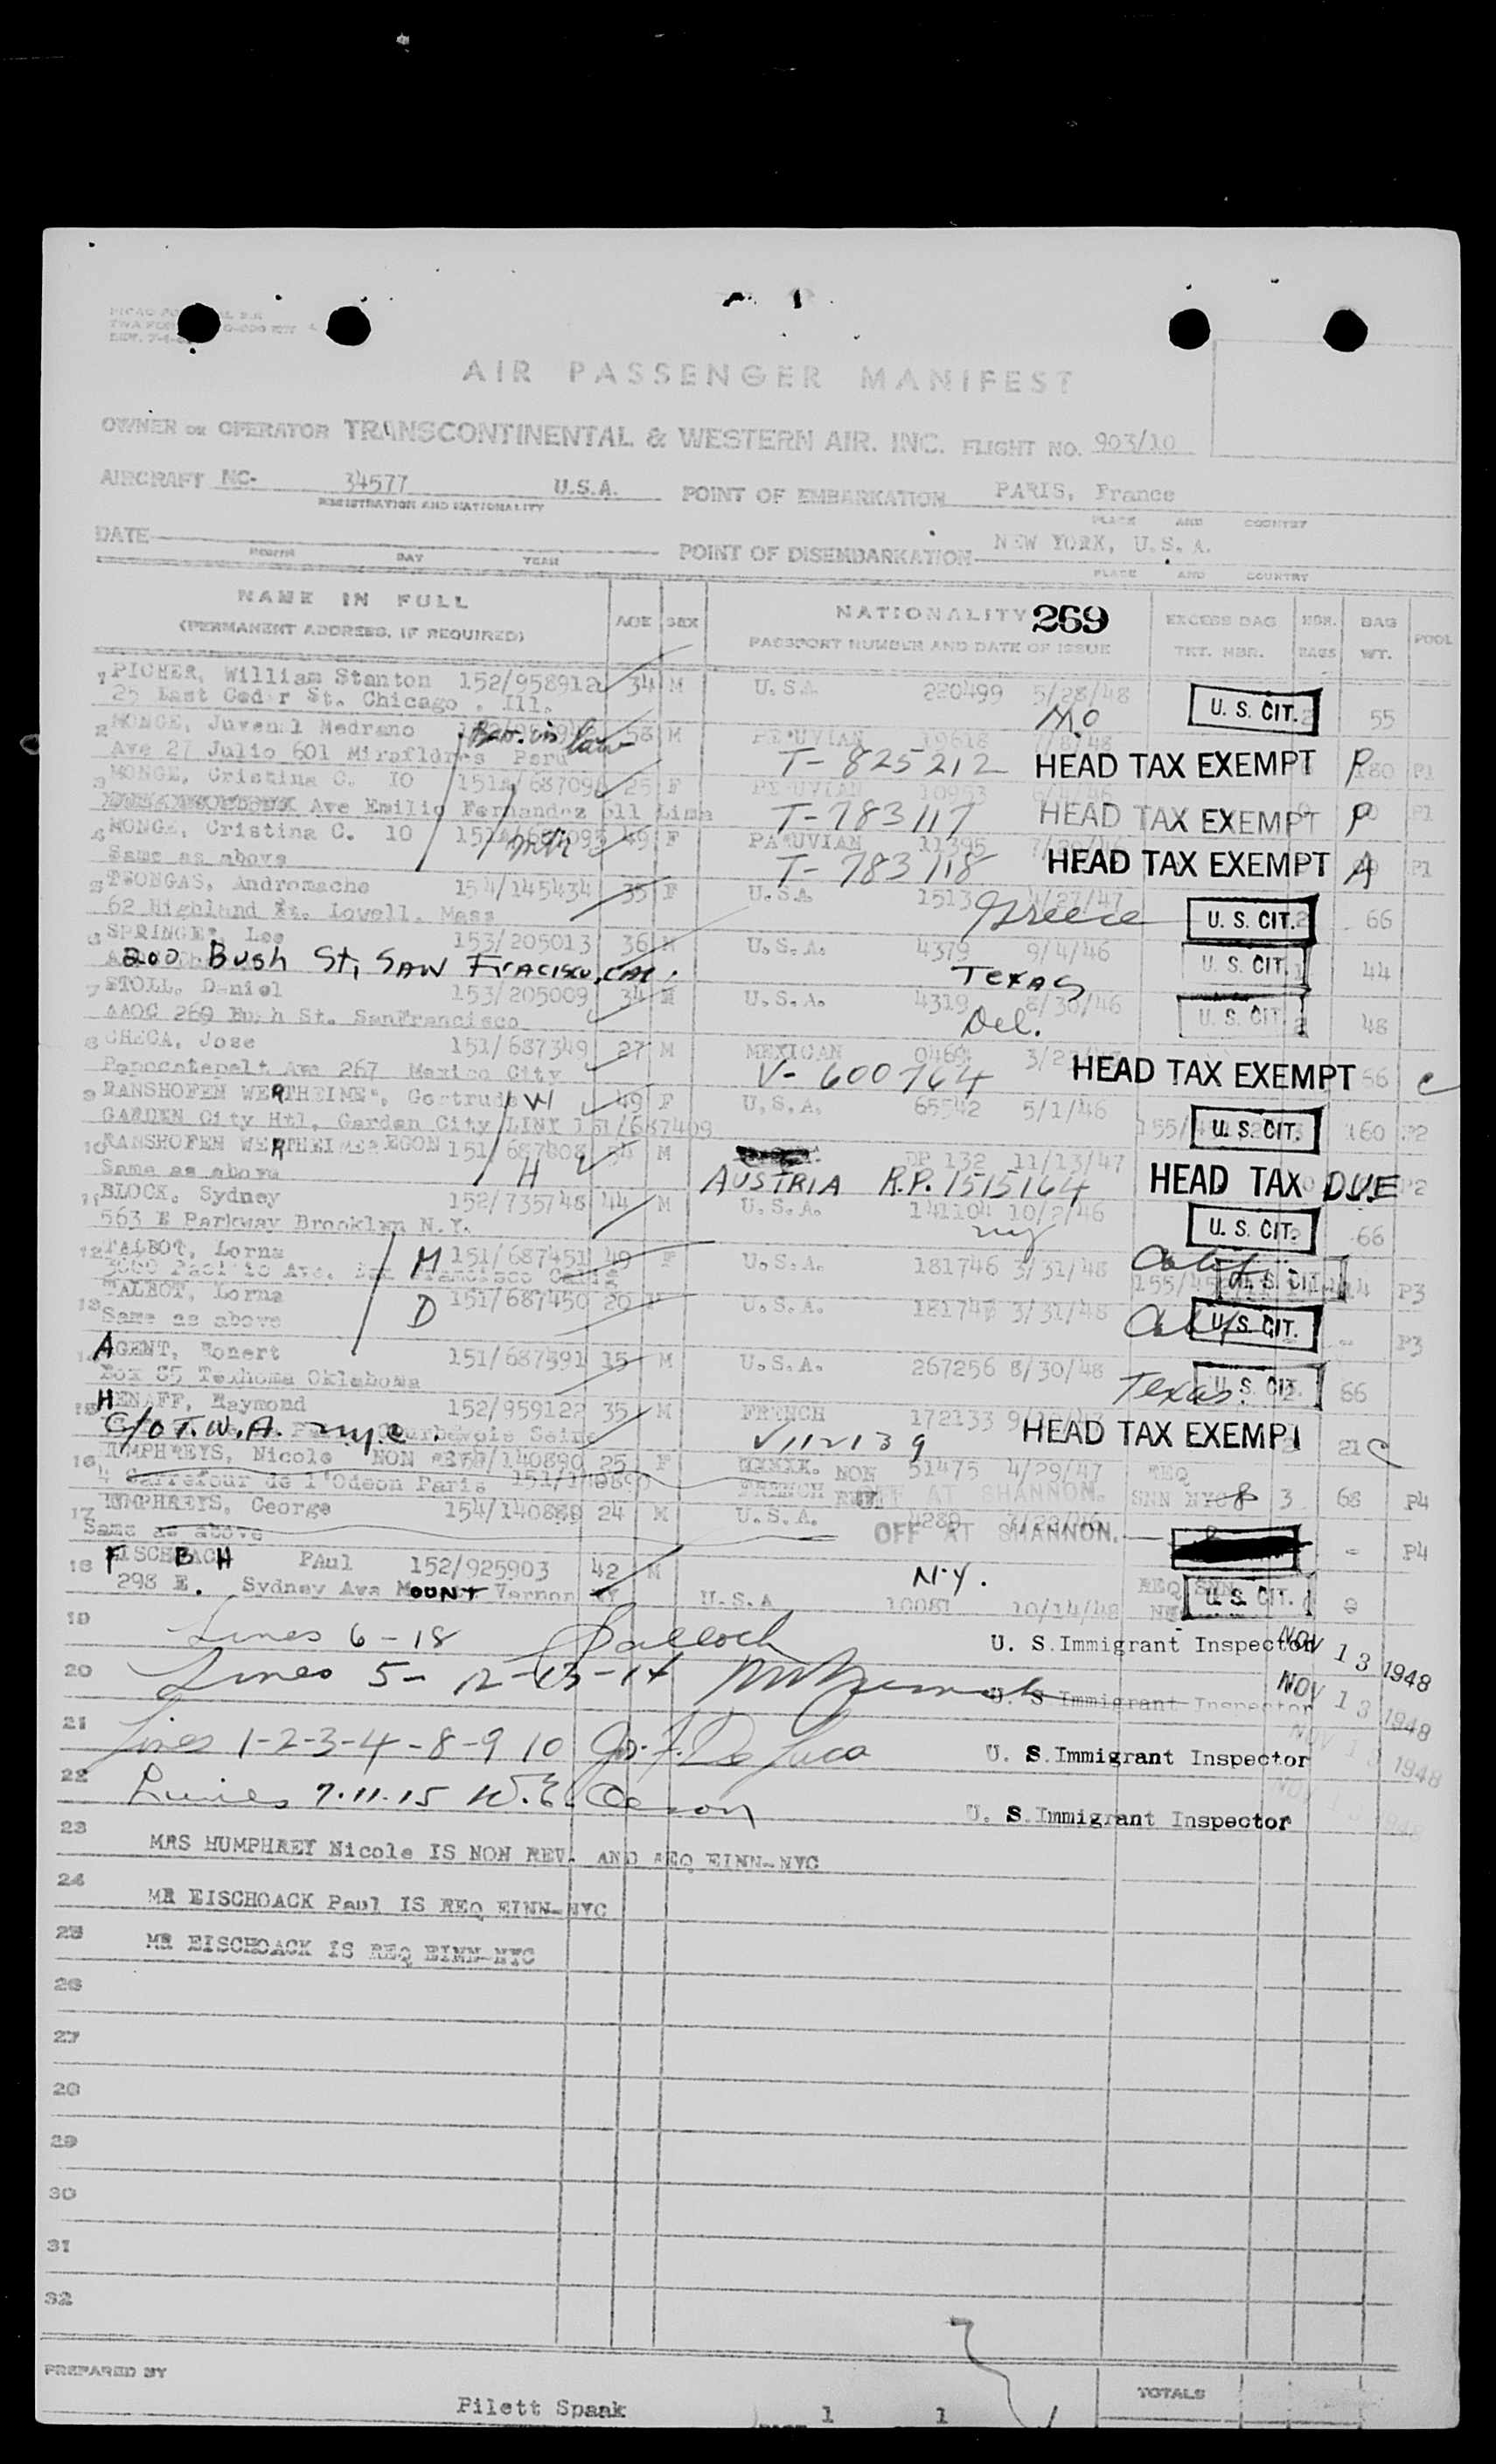 AIR PASSENGER MANIFEST
OWNER OR OPERATOR TRANSCONTINENTAL & WESTERN AIR. INC. FLIGHT NO. 903/10
AIRCRAFT NC- 34577 U.S.A. POINT OF EMBARKATION PARIS, France
REGISTRATION AND NATIONALITY PLACE AND COUNTRY
DATE POINT OF DISEMBARKATION NEW YORK, U.S.A.
MONTH DAY YEAR PLACE AND COUNTRY
NAME IN FULL AGE SEX NATIONALITY 269 EXCESS BAG NBR. BAG POOL
(PERMANENT ADDRESS, IF REQUIRED) PASSPORT NUMBER AND DATE OF ISSUE TKT. NBR. BAGS WT.
1 PICHER, William Stanton 152/958912 34 M U.S.A 220499 5/28/48 U. S. CIT. 55
25 East Ceder St. Chicago, Ill. Mo
2 MONGE, Juvenal Medrano 58 M PERUVIAN 10618
Ave 27 Julio 601 Miraflores Peru T-825212 HEAD TAX EXEMPT P P1
3 MONGE, Cristina C. IO 151/68709 25 F PERUVIAN 10953
Ave Emilio Fernandez 611 Lima T-783117 HEAD TAX EXEMPT P P1
4 MONGE, Cristina C. 10 49 F PARUVIAN 11395
Same as above T-783118 HEAD TAX EXEMPT A P1
5 TSONGAS, Andromache 154/145434 35 F U.S.A 1513 4/27/47
62 Highland St. Lowell. Mass Greece U. S. CIT. 66
6 SPRINGER, Leo 153/205013 36 M U.S.A. 4379 9/4/46
200 Bush St, SAN FRACISCO, CAL. TEXAS U. S. CIT. 44
7 STOLL, Daniel 153/205009 34 M U.S.A. 4319 8/30/46
AAOC 269 Bush St. SanFrancisco Del. U. S. CIT. 48
8 CHECA, Jose 151/687349 27 M MEXICAN
Popocatepelt Ave 267 Mexico City V-600764 HEAD TAX EXEMPT 66 C
9 RANSHOFEN WERTHEIMER, Gertrude W 49 F U.S.A. 65542 5/1/46
GARDEN City Htl, Garden City LINY 151/687409 U. S. CIT. 160 P2
10 RANSHOFEN WERTHEIMER EGON 151/687408 H 54 M DP 132 11/13/47
Same as above AUSTRIA R.P. 1515164 HEAD TAX DUE P2
11 BLOCK, Sydney 152/735748 44 M U.S.A. 141104 10/2/46
563 E Parkway Brooklyn N.Y. ny U. S. CIT. 66
12 TALBOT, Lorna M 151/687451 49 F U.S.A. 181746 3/31/48 Calif
3000 Pacific Ave. San Francisco Calif U. S. CIT. P3
13 TALBOT, Lorna D 151/687450 20 U.S.A. 3/31/48
Same as above Calif U. S. CIT. - P3
AGENT, Ronert 151/687391 15 M U.S.A. 267256 8/30/48
Box 85 Texhoma Oklahoma Texas. U. S. CIT. 66
15 HENAFF, Raymond 152/959122 35 M FRENCH 172133
C/O T.W.A. nyc V112139 HEAD TAX EXEMPT 21 C
16 HUMPHREYS, Nicole NON REV/140890 25 F NON 51475 4/29/47 REQ
4 Carrefour de l'Odeon Paris 151/140890 FRENCH REV OFF AT SHANNON. SNN NYC 3 68 P4
17 HUMPHREYS, George 154/140889 24 M U.S.A. 4289
Same as above OFF AT SHANNON. - P4
18 FISCHBACH PAul 152/925903 42 M N.Y. REQ SNN
298 E. Sydney Ave MOUNT Vernon NY U.S.A 10081 10/14/48 U. S. CIT.
19 Lines 6-18 U. S. Immigrant Inspector NOV 13 1948
20 Lines 5-12-13-14 U. S. Immigrant Inspector NOV 13 1948
21 Lines 1-2-3-4-8-9 10 Jos. F. De Luca U. S. Immigrant Inspector NOV 13 1948
22 Lines 7.11.15 U. S. Immigrant Inspector
23 MRS HUMPHREY Nicole IS NON REV. AND REQ EINN-NYC
24 MR EISCHOACK Paul IS REQ EINN-NYC
25 MR EISCHOACK IS REQ EINN-NYC
26
27
28
29
30
31
32
PREPARED BY TOTALS
Pilett Spaak 1 1